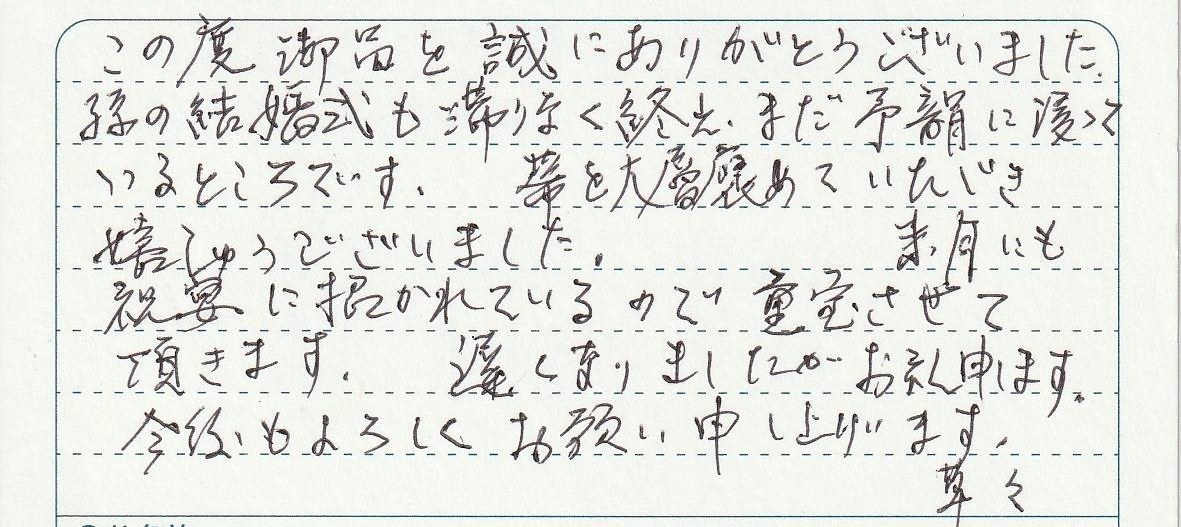 この度御品を誠にありがとうございました.
孫の結婚式も滞りなく終え、まだ予韻に浸って
いるところです. 帯を大層褒めていただき
嬉しゅうございました. 来月にも
祝宴に招かれているので重宝させて
頂きます. 遅くなりましたがお礼申します.
今後もよろしくお願い申し上げます.
草々